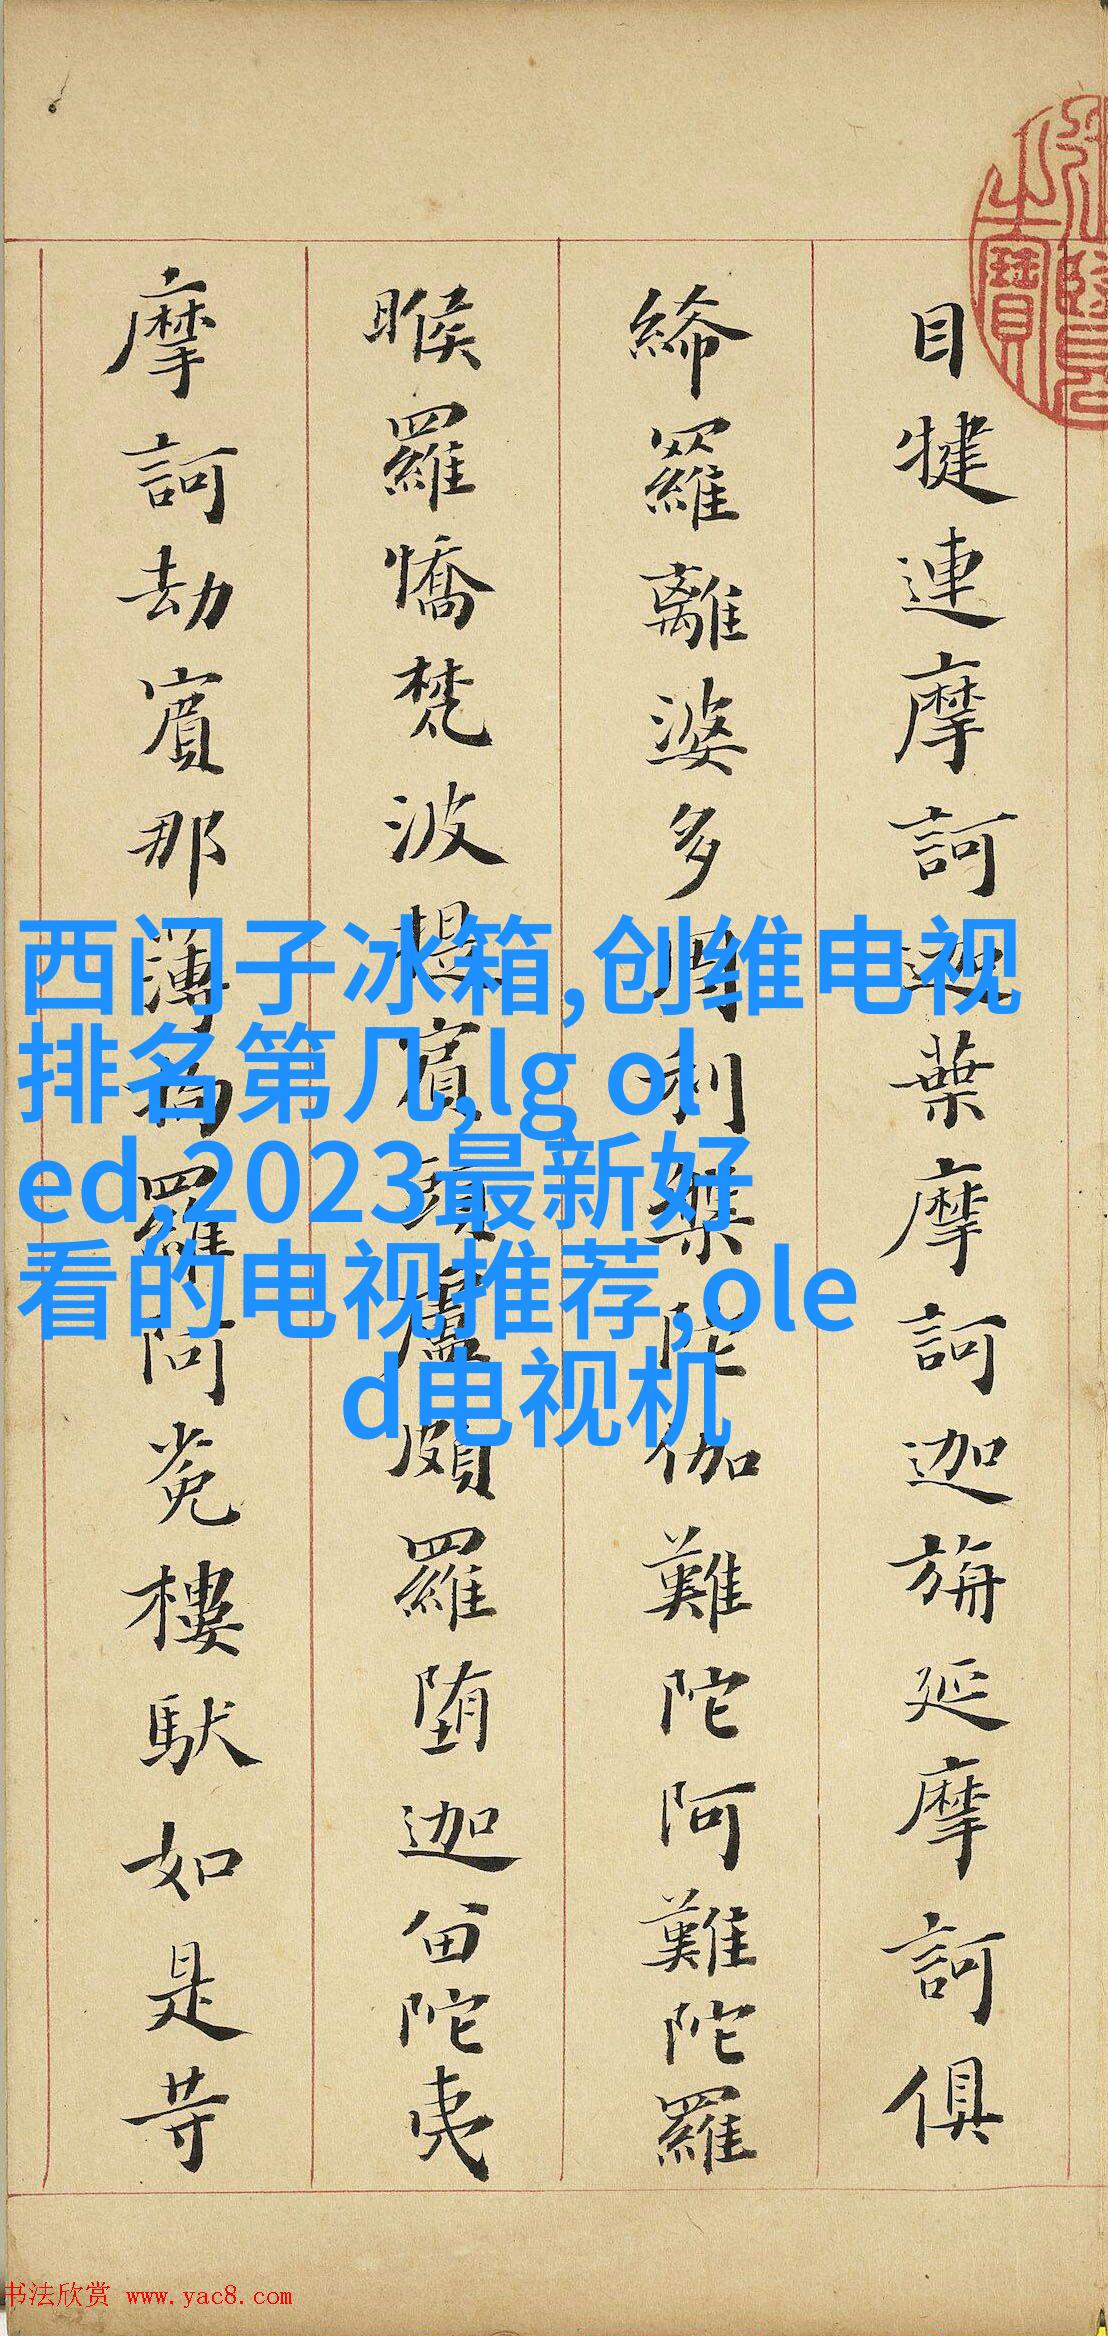 目犍連摩訶迦葉摩訶迦旃延摩訶俱
絺羅離婆多周利槃陀伽難陀阿難陀羅
睺羅憍梵波提賓頭盧頗羅堕迦留陀夷
摩訶劫賓那薄拘羅阿㝹樓馱如是等
西门子冰箱,创维电视
排名第几,lg ol
ed,2023最新好
看的电视推荐,ole
d电视机
书法欣赏 www.yac8.com